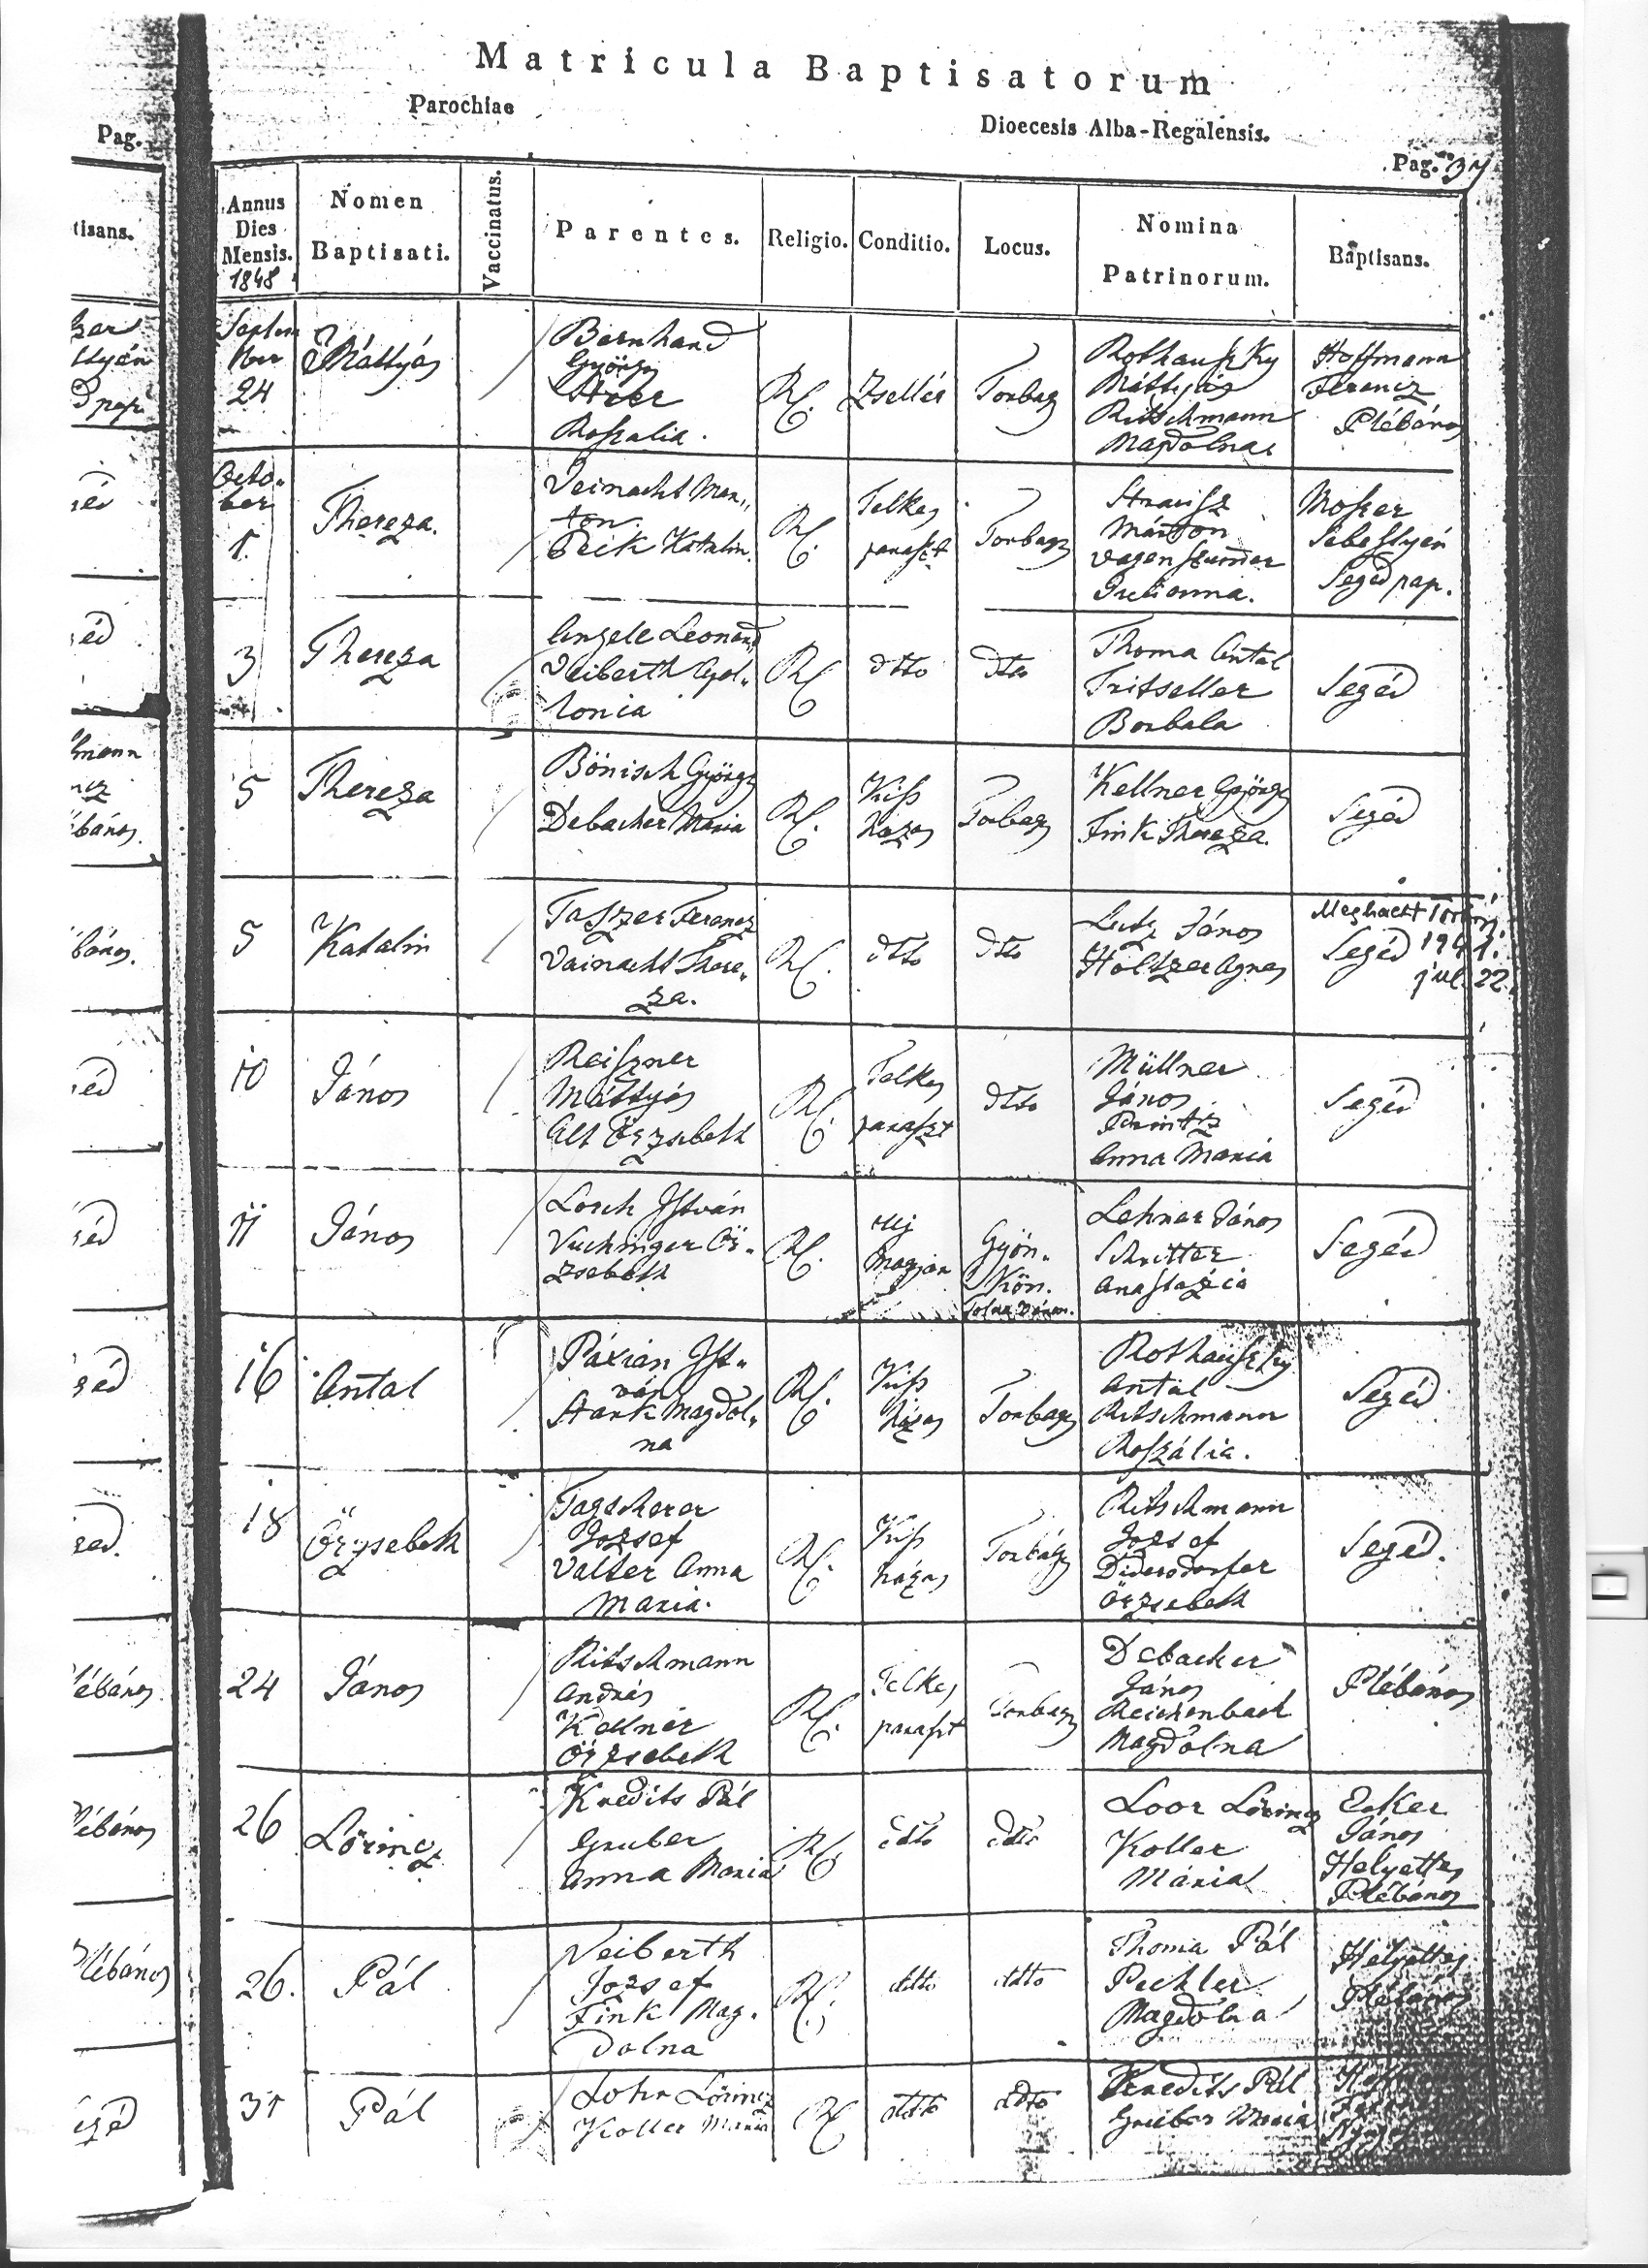 Matricula Baptisatorum
Parochiae
Dioecesis Alba-Regalensis.
Pag.
Pag. 37
tisans.
Annus
Dies
Mensis.
1848
Nomen
Baptisati.
Vaccinatus.
Parentes.
Religio.
Conditio.
Locus.
Nomina
Patrinorum.
Baptisans.
Septem
ber
24
Mátyás
Bernhard
György
Roszalia.
RC.
Zsellér
Torbágy
Rothauszky
Mátyás
Ritschmann
Magdolna
Hoffmann
Ferencz
Plébános
Octo-
ber
1.
Thereza.
Veinacht Már-
ton
Peik Katalin.
RC.
Telkes
paraszt
Torbágy
Strausz
Márton
Julianna.
Moszer
Sebestyén
Segéd pap.
3
Thereza
Angele Leonard
Veiberth Apol-
lonia
RC
dtto
dtto
Thoma Antal
Tritseller
Borbala
Segéd
5
Thereza
Bönisch György
Debacher Maria
RC.
Kiss
házas
Torbágy
Kellner György
Fink Thereza.
Segéd
5
Katalin
Taszer Ferencz
Vainacht There-
za.
RC.
dtto
dtto
Lutz János
Holtzer Agnes
Meghalt Torbágy.
Segéd 1941.
jul. 22.
10
János
Reiszner
Mátyás
Alt Örzsebeth
RC.
Telkes
paraszt
dtto
Müllner
János
Anna Maria
Segéd
11
János
Losch István
Vuchinger Ör-
zsebeth
RC.
Uj
magyar
Gyön-
kön.
Tolna várm.
Lehner János
Schritter
Anastazia
Segéd
16
Antal
Páxian Ist-
ván
Stark Magdol-
na
RC.
Kiss
házas
Torbágy
Rothauszky
Antal
Ritschmann
Roszália.
Segéd
18
Örzsebeth
Tagscherer
Jozsef
Valter Anna
Maria.
RC.
Kiss
házas
Torbágy
Ritschmann
Jozsef
Didersdorfer
Örzsebeth
Segéd.
24
János
Ritschmann
András
Kellner
Örzsebeth
RC.
Telkes
paraszt
Torbágy
Debacher
János
Reichenbach
Magdolna
Plébános
26
Lörincz
Kredits Pál
Gruber
Anna Maria
RC
dtto
dtto
Loor Lörincz
Koller
Mária
Ecker
János
Helyettes
Plébános
26.
Pál
Veiberth
Jozsef
Fink Mag-
dolna
RC.
ddto
ddto
Thoma Pál
Pechler
Magdolna
Helyettes
Plébános
31
Pál
Lohr Lörincz
Koller Maria
RC
ddto
ddto
Kredits Pál
Gruber Maria